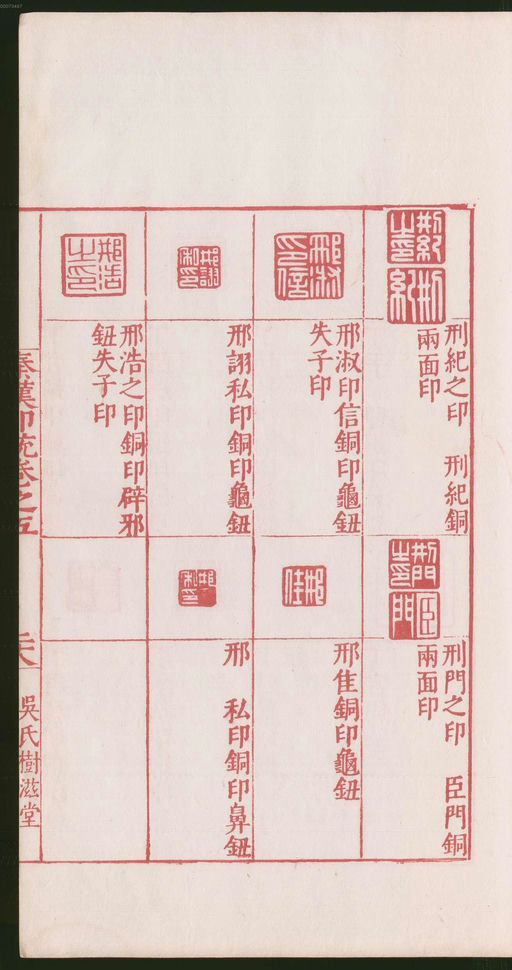 刑紀之印　刑紀銅
兩面印
邢淑印信銅印龜鈕
失子印
邢詡私印銅印龜鈕
邢浩之印銅印辟邪
鈕失子印
刑門之印　臣門銅
兩面印
邢隹銅印龜鈕
邢　私印銅印鼻鈕
秦漢印統卷之五
吳氏樹滋堂
00073487